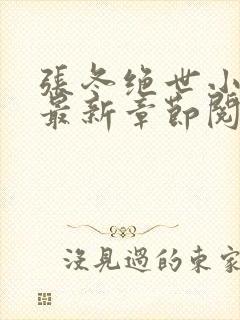 張冬绝世小
最新章節閱
没見過的東家